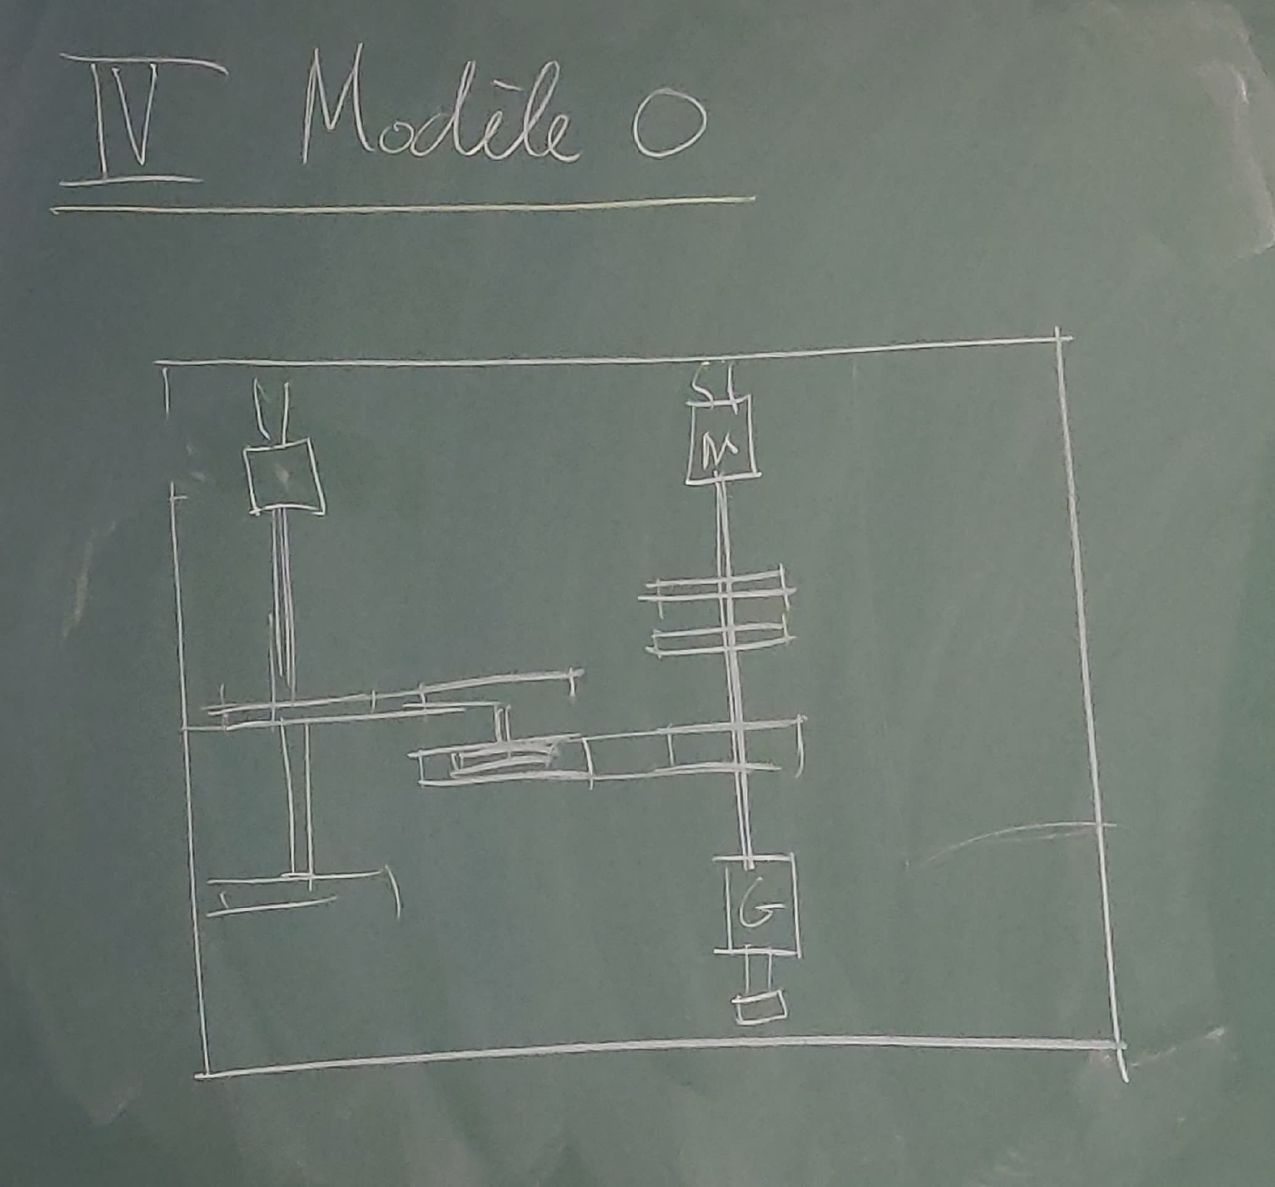 IV Modèle 0
M
G